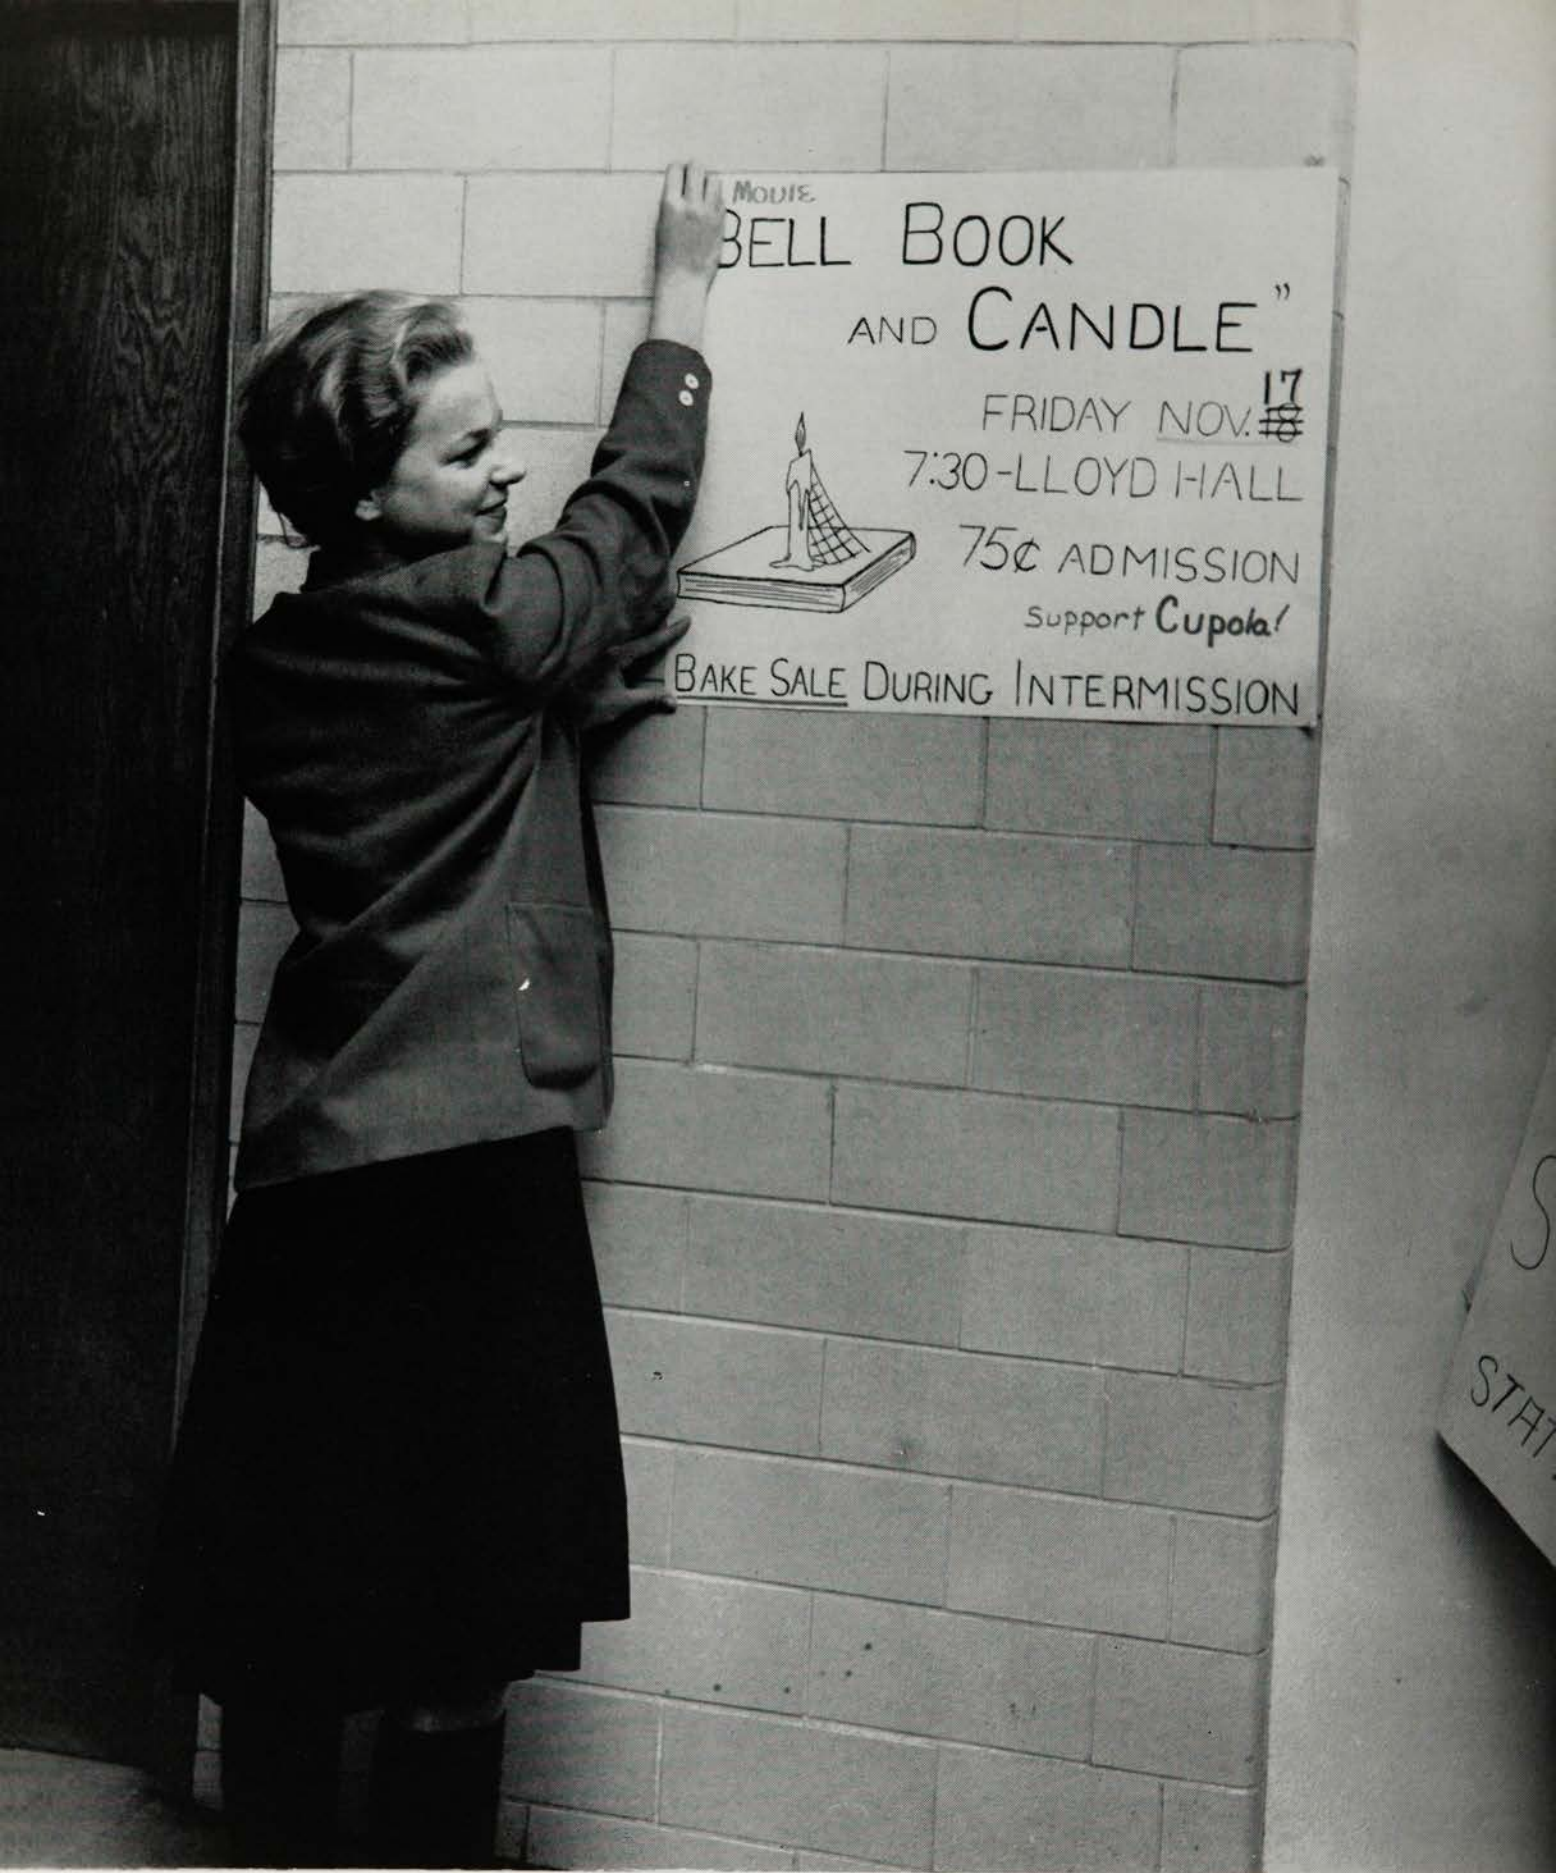 MOVIE
BELL BOOK
AND CANDLE"
17
FRIDAY NOV. 18
7:30-LLOYD HALL
75¢ ADMISSION
Support Cupola!
BAKE SALE DURING INTERMISSION
S
STAT